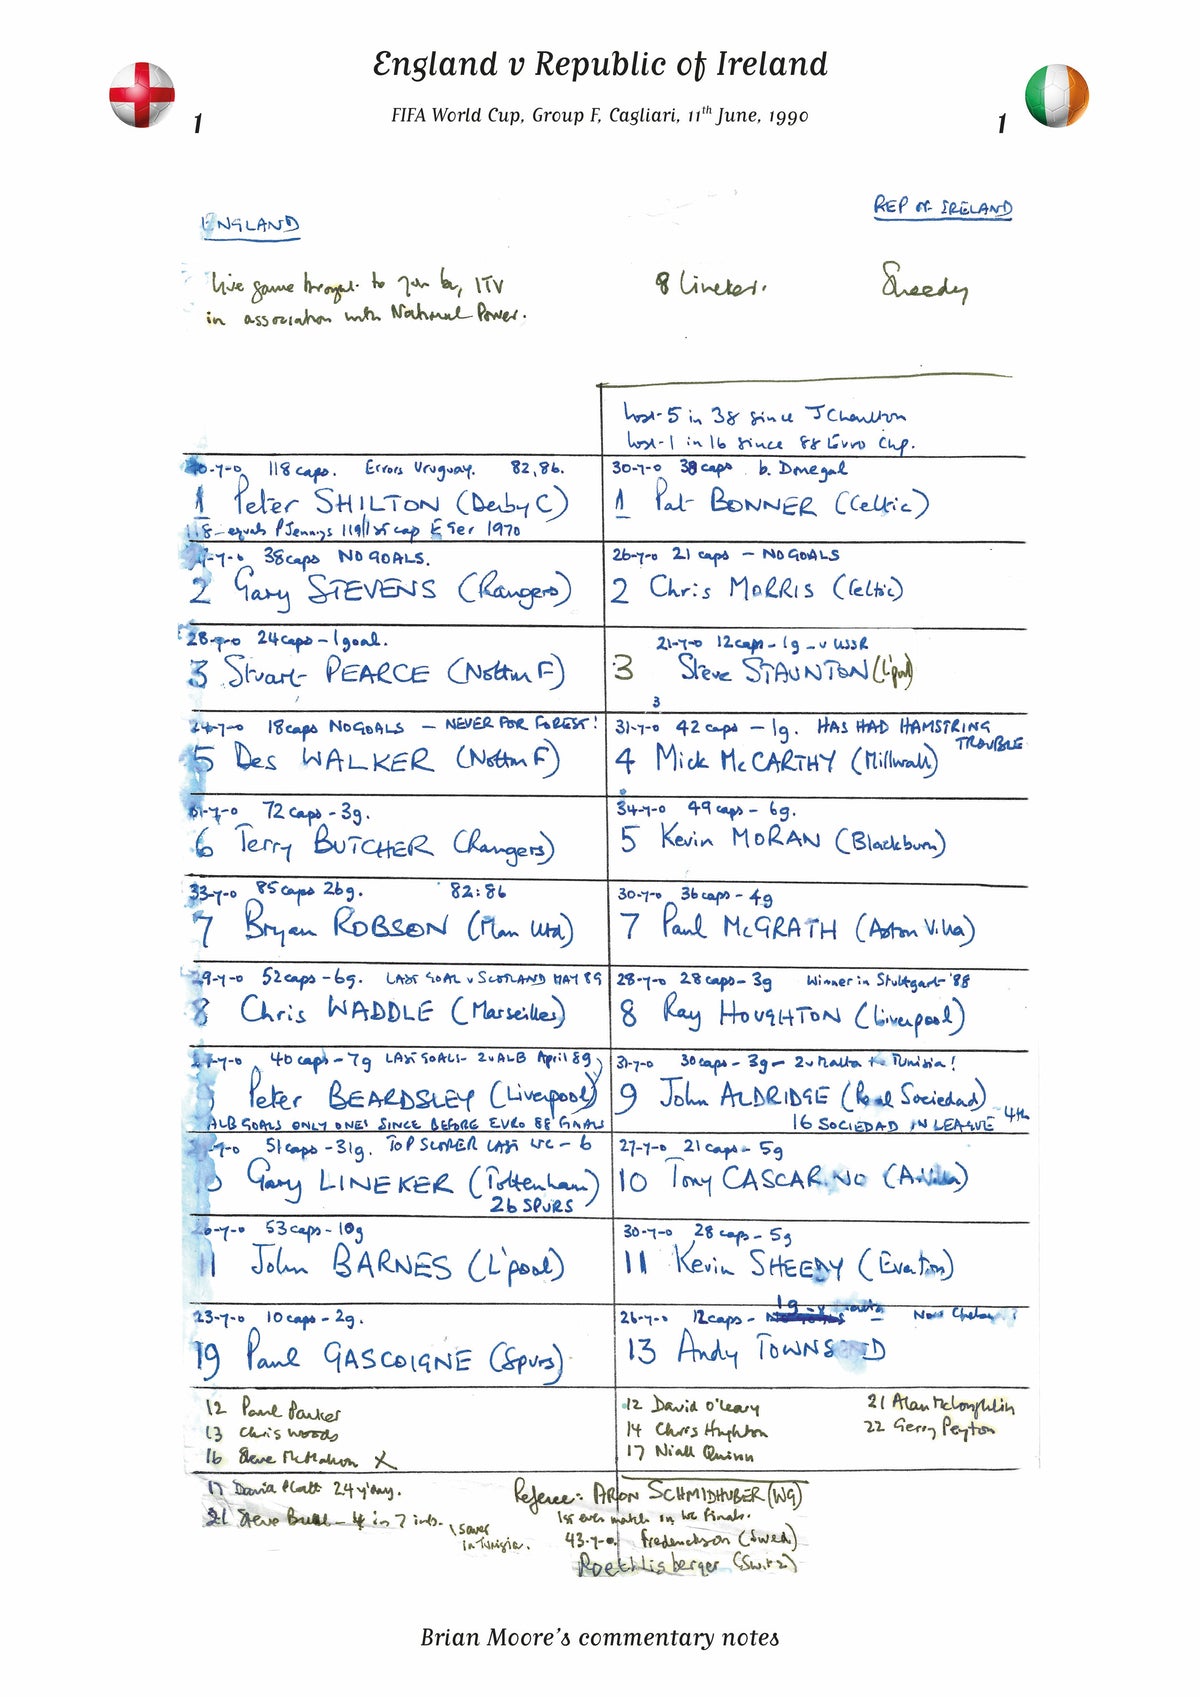 England v Republic of Ireland
FIFA World Cup, Group F, Cagliari, 11th June, 1990
1
1
ENGLAND
REP OF IRELAND
Live game brought to you by ITV
in association with National Power.
8 Lineker.
Sheedy
Lost 5 in 38 since J Charlton
Lost 1 in 16 since 88 Euro Chp.
40-y-o 118 caps. Errors Uruguay. 82, 86.
1 Peter SHILTON (Derby C)
118 - equals P Jennings 119 / 1st cap E Ger 1970
30-y-o 38 caps b. Donegal
1 Pat BONNER (Celtic)
27-y-o 38 caps NO GOALS.
2 Gary STEVENS (Rangers)
26-y-o 21 caps - NO GOALS
2 Chris MORRIS (Celtic)
28-y-o 24 caps - 1 goal.
3 Stuart PEARCE (Nottm F)
21-y-o 12 caps - 1g - v USSR
3 Steve STAUNTON (L'pool)
3
24-y-o 18 caps NO GOALS - NEVER FOR FOREST!
5 Des WALKER (Nottm F)
31-y-o 42 caps - 1g. HAS HAD HAMSTRING
TROUBLE
4 Mick McCARTHY (Millwall)
31-y-o 72 caps - 3g.
6 Terry BUTCHER (Rangers)
34-y-o 49 caps - 6g.
5 Kevin MORAN (Blackburn)
33-y-o 85 caps 26g. 82:86
7 Bryan ROBSON (Man Utd)
30-y-o 36 caps - 4g
7 Paul McGRATH (Aston Villa)
29-y-o 52 caps - 6g. LAST GOAL v SCOTLAND MAY 89
8 Chris WADDLE (Marseilles)
28-y-o 28 caps - 3g Winner in Stuttgart '88
8 Ray HOUGHTON (Liverpool)
-y-o 40 caps - 7g LAST GOALS - 2 v ALB April 89
Peter BEARDSLEY (Liverpool)
ALB GOALS ONLY ONES SINCE BEFORE EURO 88 FINALS
31-y-o 30 caps - 3g - 2 v Malta + Tunisia!
9 John ALDRIDGE (Real Sociedad)
16 SOCIEDAD IN LEAGUE 4th
-y-o 51 caps - 31g. TOP SCORER LAST WC - 6
Gary LINEKER (Tottenham)
26 SPURS
27-y-o 21 caps - 5g
10 Tony CASCARINO (A. Villa)
26-y-o 53 caps - 10g
11 John BARNES (L'pool)
30-y-o 28 caps - 5g
11 Kevin SHEEDY (Everton)
23-y-o 10 caps - 2g.
19 Paul GASCOIGNE (Spurs)
26-y-o 12 caps - 1g - v Malta Now Chelsea?
13 Andy TOWNSEND
12 Paul Parker
13 Chris Woods
16 Steve McMahon X
17 David Platt 24 y'day.
21 Steve Bull - 4 in 7 ints.
\ Saver in Tunisia.
12 David O'Leary
14 Chris Hughton
17 Niall Quinn
21 Alan McLoughlin
22 Gerry Peyton
Referee: ARON SCHMIDHUBER (WG)
1st ever match in WC Finals.
43-y-o. Frederickson (Swed)
Roethlisberger (Switz)
Brian Moore's commentary notes